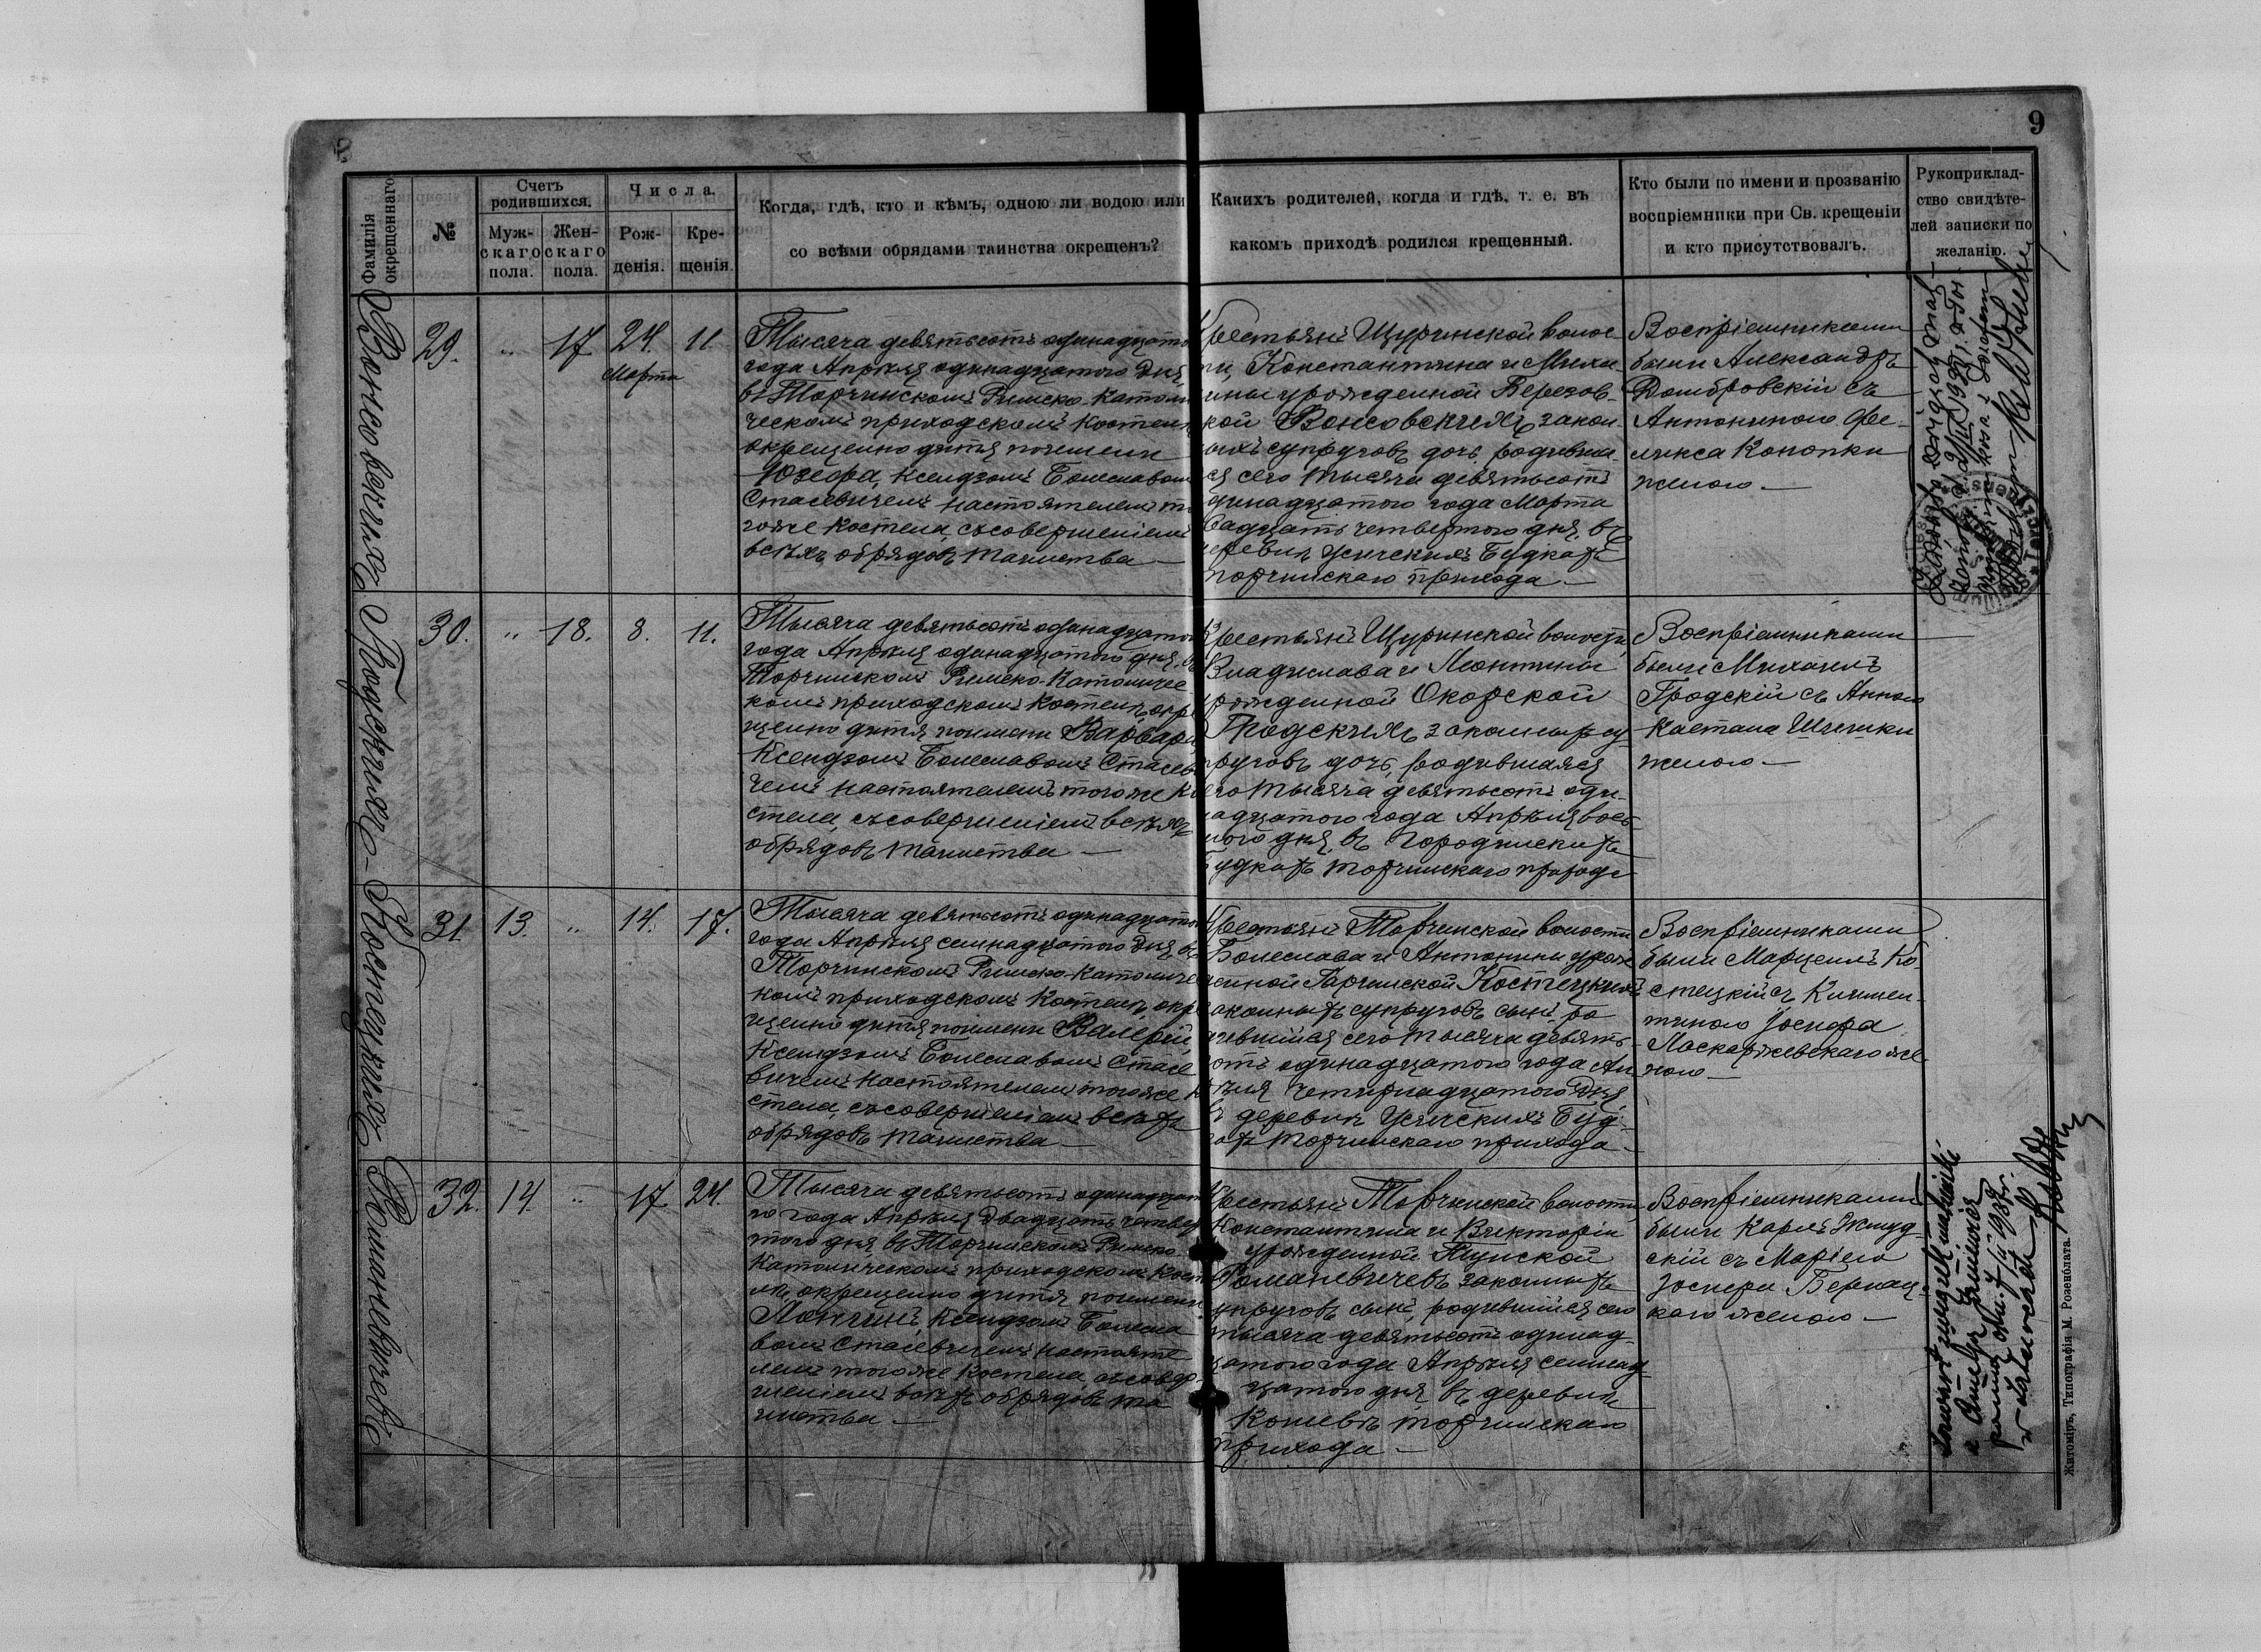 9
Фамилія окрещеннаго
№
Счетъ родившихся.
Мужскаго пола.
Женскаго пола.
Числа.
Рожденія.
Крещенія.
Когда, гдѣ, кто и кѣмъ, одною ли водою или
со всѣми обрядами таинства окрещенъ?
Какихъ родителей, когда и гдѣ, т. е. въ
какомъ приходѣ родился крещенный.
Кто были по имени и прозванію
воспріемники при Св. крещеніи
и кто присутствовалъ.
Рукоприклад-
ство свидѣте-
лей записки по
желанію.
Вонсовскихъ
29. " 17 24. 11
Марта
Тысяча девятьсотъ одинадцато
года Апрѣля одинадцатого дня,
въ Торчинскомъ Римско-Католи
ческомъ приходскомъ костелѣ
окрещено дитя по имени
Юзефа, Ксендзомъ Болеславомъ
Стасевичемъ настоятелемъ то
гоже костела, съ совершеніемъ
всѣхъ обрядовъ таинства —
Крестьянъ Щуринской волос-
ти, Константина и Миха
ины урожденной Березов-
кой Вонсовскихъ закон-
ныхъ супруговъ дочь, родивша-
яся сего тысяча девятьсотъ
динадцатого года Марта
вадцать четвертого дня, въ
деревнѣ Усичскихъ Будкахъ
торчинскаго прихода —
Воспріемниками
были Александръ
Домбровскій съ
Антониною Фе-
ликса Конопки
женою —
Гродскихъ
30. " 18. 8. 11.
Тысяча девятьсотъ одинадцатого
года Апрѣля одинадцатого дня, въ
Торчинскомъ Римско-Католичес
комъ приходскомъ костелѣ, окре
щено дитя по имени Варвара,
Ксендзомъ Болеславомъ Стасеви
чемъ настоятелемъ тогоже ко
стела, съ совершеніемъ всѣхъ
обрядовъ таинства —
Крестьянъ Щуринской волости,
Владислава и Леонтины
урожденной Окорской
Гродскихъ законныхъ су-
пруговъ дочь, родившаяся
сего тысяча девятьсотъ оди-
надцатого года Апрѣля вось-
мого дня, въ Городискихъ
Будкахъ торчинскаго прихода
Воспріемниками
были Михаилъ
Гродскій съ Анною
женою —
Костецкихъ
31 13. " 14. 17.
Тысяча девятьсотъ одинадцато
года Апрѣля семнадцатого дня въ
Торчинскомъ Римско-Католичес
комъ приходскомъ костелѣ, окре
щено дитя по имени Валерій,
Ксендзомъ Болеславомъ Стасе
вичемъ настоятелемъ тогоже ко
стела, съ совершеніемъ всѣхъ
обрядовъ таинства —
Крестьянъ Торчинской волости
Болеслава и Антонины урож
денной Гарчинской Костецкихъ
законныхъ супруговъ сынъ, ро
дившійся сего тысяча девять-
сотъ одинадцатого года Ап
рѣля четырнадцатого дня
въ деревнѣ Усичскихъ Буд-
кахъ торчинскаго прихода —
Воспріемниками
были Марцелъ Ко-
стецкій съ Климен-
тиною Іосифа
Ласкаржевскаго же
ною —
Романевичевъ
32. 14. " 17. 24.
Тысяча девятьсотъ одинадцат
го года Апрѣля двадцать четвер
того дня, въ Торчинскомъ Римско-
Католическомъ приходскомъ косте
лѣ, окрещено дитя по имени
Лонгинъ, Ксендзомъ Болесла
вомъ Стасевичемъ настояте
лемъ тогоже костела, съ совер-
шеніемъ всѣхъ обрядовъ та
инства —
Крестьянъ Торчинской волости
Константина и Викторіи
урожденной
Романевичевъ законныхъ
супруговъ сынъ, родившійся сего
тысяча девятьсотъ одинад-
цатого года Апрѣля семнад-
цатого дня, въ деревнѣ
Кошевѣ торчинскаго
прихода —
Воспріемниками
были Карлъ Жмуд-
скій съ Маріею
женою —
Житоміръ, Типографія М. Розенблата.